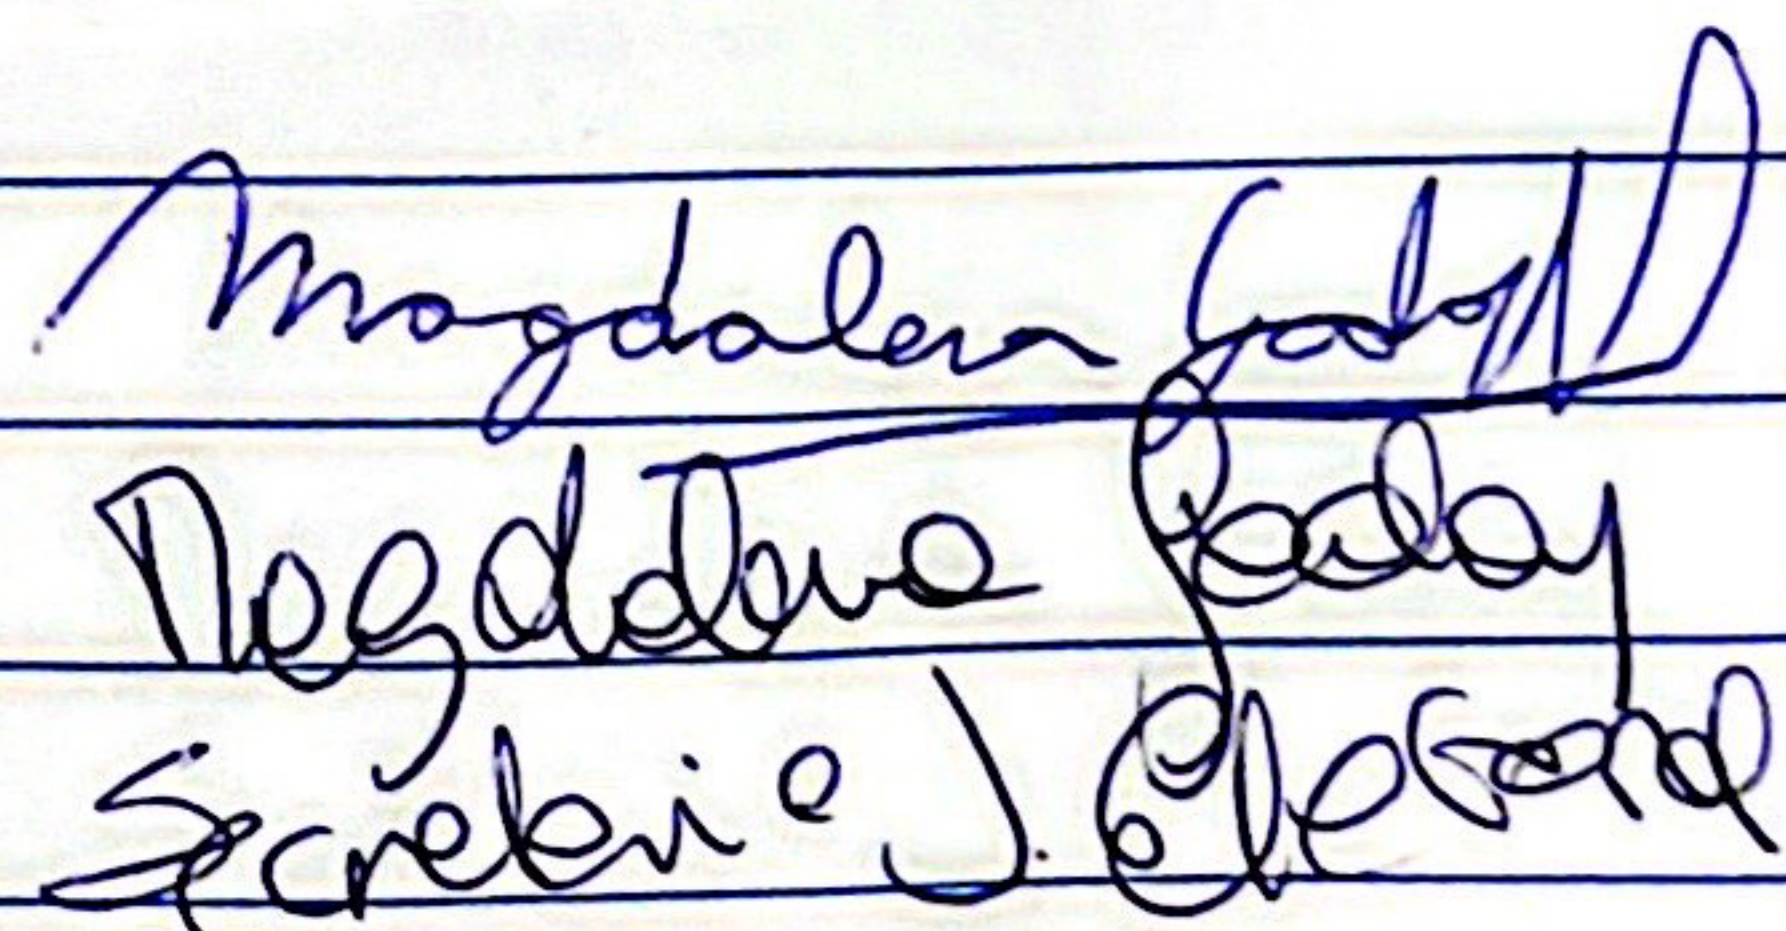 Magdalena Godoy
Magdalena Godoy
Secretaria J. Electoral